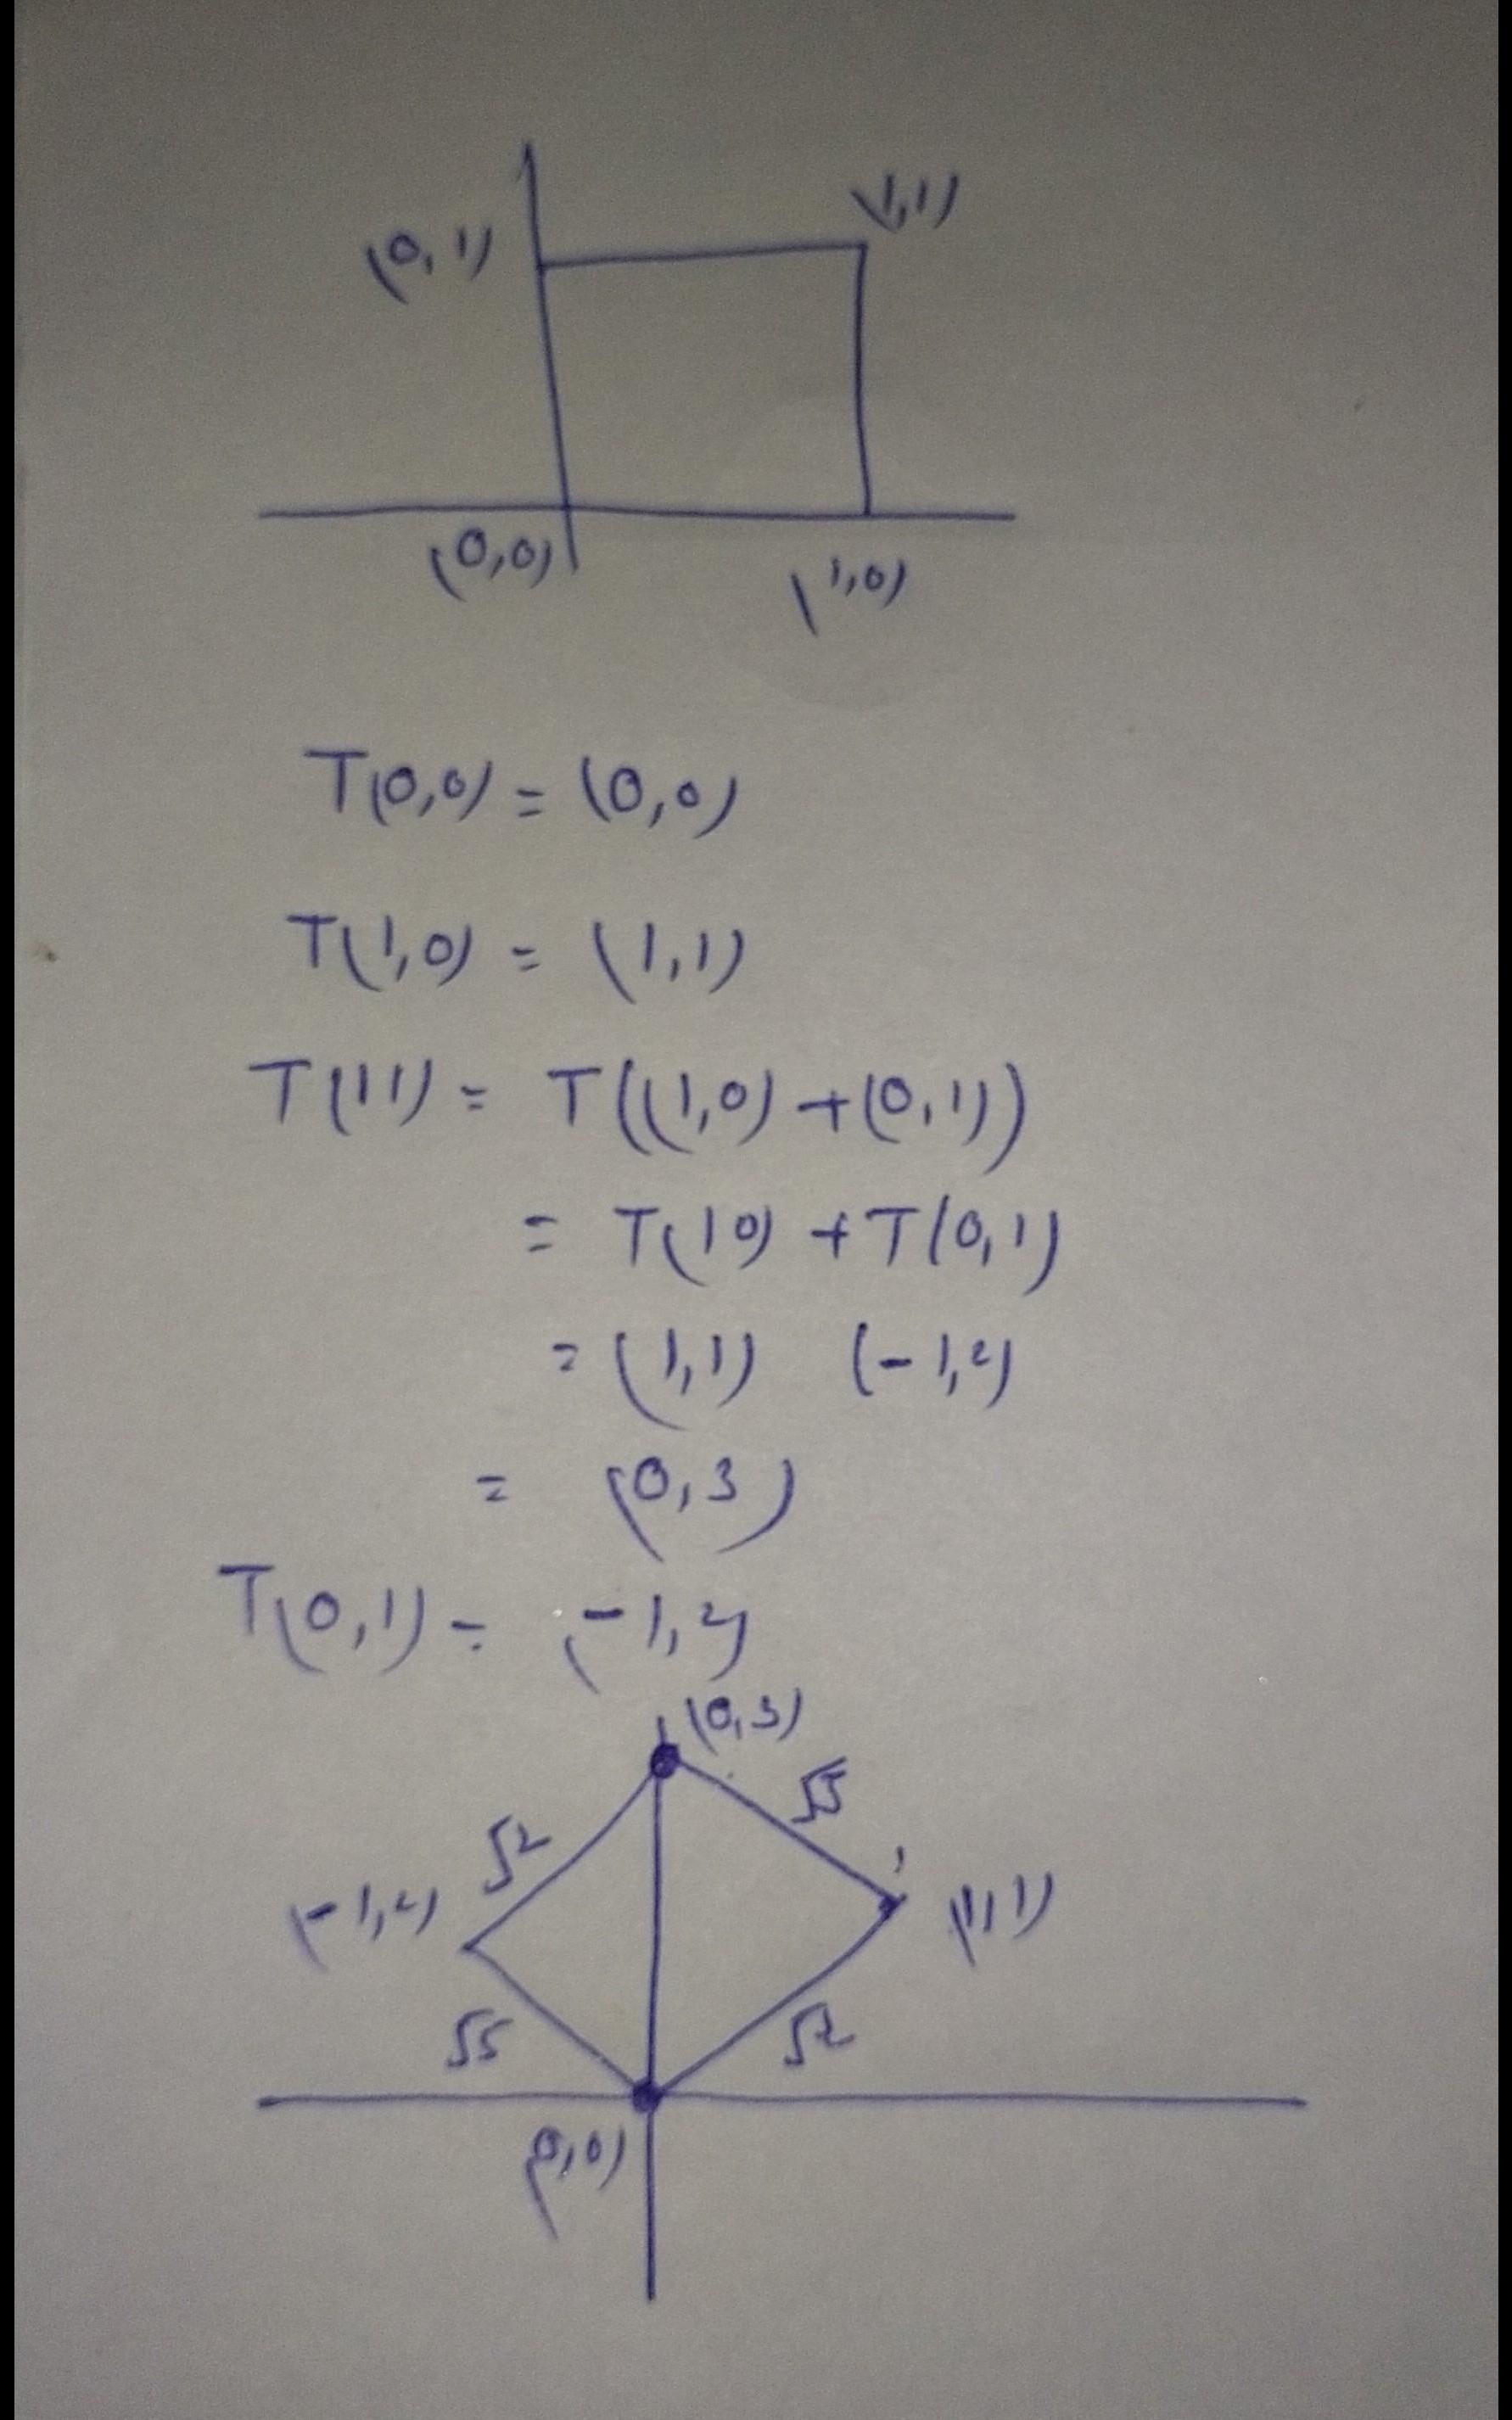 (0,1) (1,1)
(0,0) (1,0)
T(0,0) = (0,0)
T(1,0) = (1,1)
T(11) = T((1,0) + (0,1))
= T(10) + T(0,1)
= (1,1) (-1,2)
= (0,3)
T(0,1) = (-1,2)
(0,3)
√5
√2
(-1,2) (1,1)
√5 √2
(0,0)